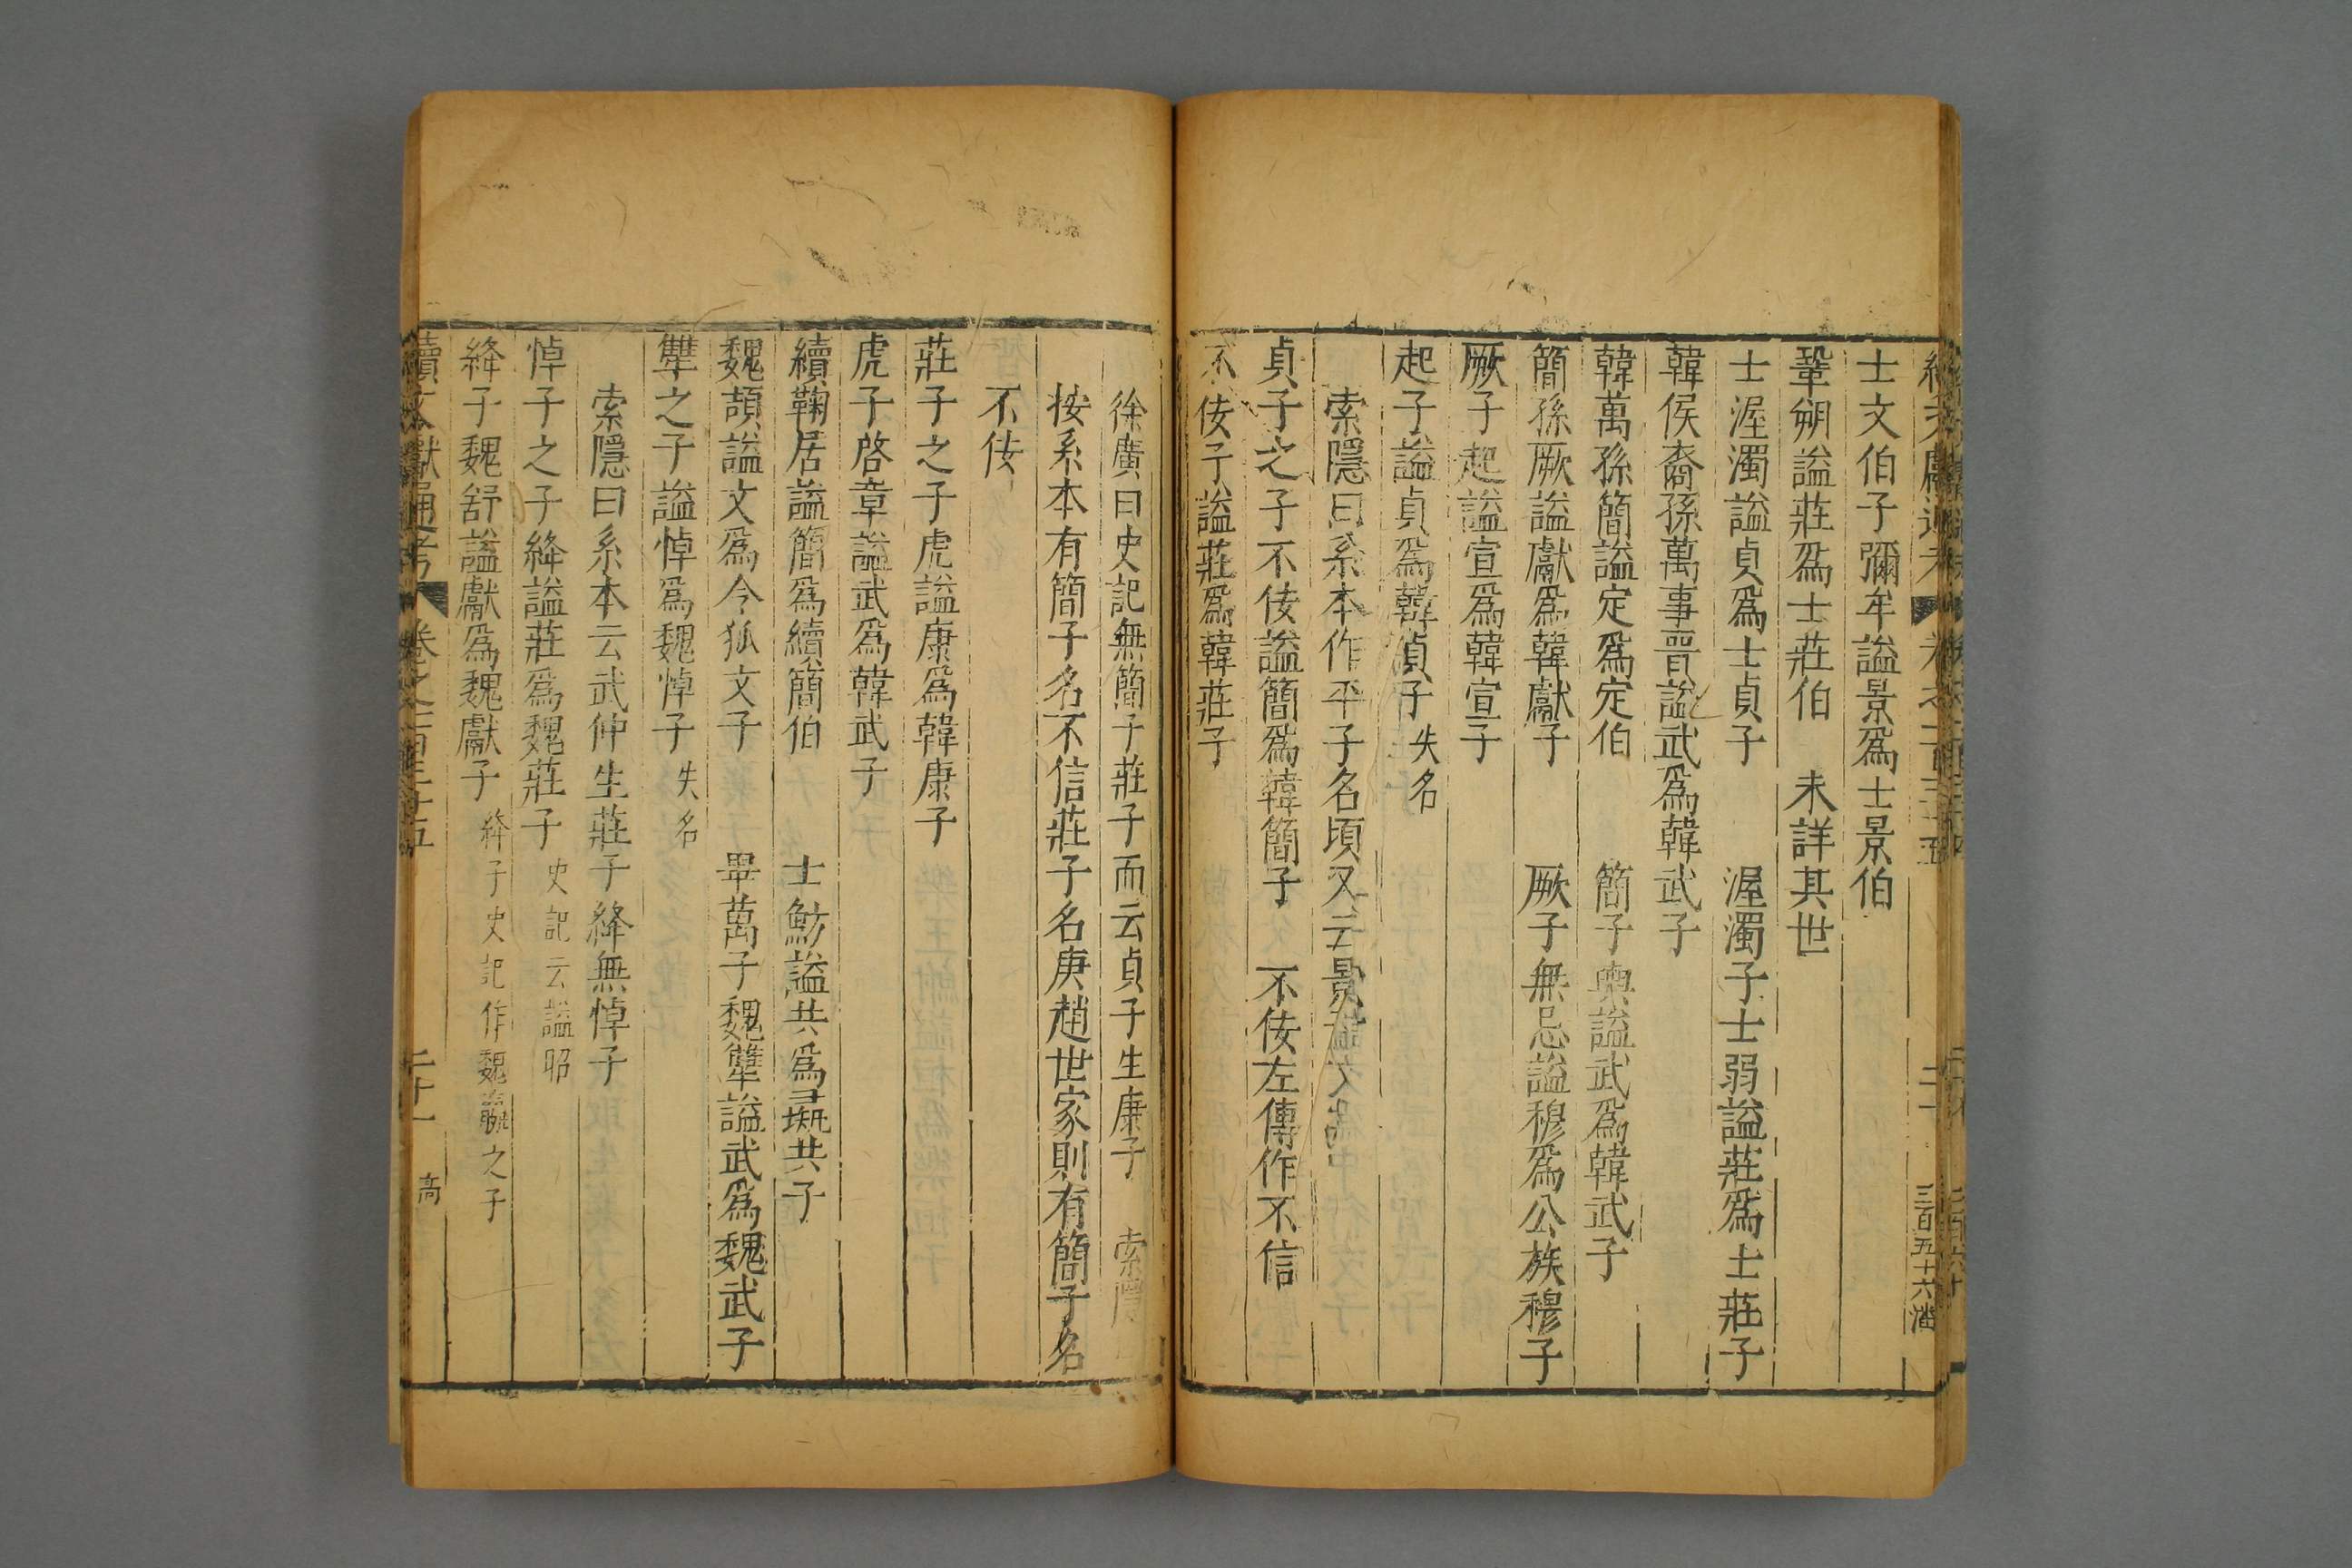 士文伯子彌牟謚景爲士景伯
鞏朔謚莊爲士莊伯 未詳其世
士渥濁謚貞爲士貞子 渥濁子士弱謚莊爲士莊子
韓侯裔孫萬事晋謚武爲韓武子
韓萬孫簡謚定爲定伯 簡子輿謚武爲韓武子
簡孫厥謚獻爲韓獻子 厥子無忌謚穆爲公族穆子
厥子起謚宣爲韓宣子
起子謚貞爲韓貞子失名
索隱曰系本作平子名頃又云景
貞子之子不佞謚簡爲韓簡子 不佞左傳作不信
不佞子謚莊爲韓莊子
徐廣曰史記無簡子莊子而云貞子生康子 索隱
按系本有簡子名不信莊子名庚趙世家則有簡子名
不佞
莊子之子虎謚康爲韓康子
虎子啓章謚武爲韓武子
續鞠居謚簡爲續簡伯 士魴謚共爲彘共子
魏頡謚文爲令狐文子 畢萬子魏犨謚武爲魏武子
犨之子謚悼爲魏悼子失名
索隱曰系本云武仲生莊子絳無悼子
悼子之子絳謚莊爲魏莊子史記云謚昭
絳子魏舒謚獻爲魏獻子絳子史記作魏嬴之子
續文獻通考 卷之一百三十五 二十一 高